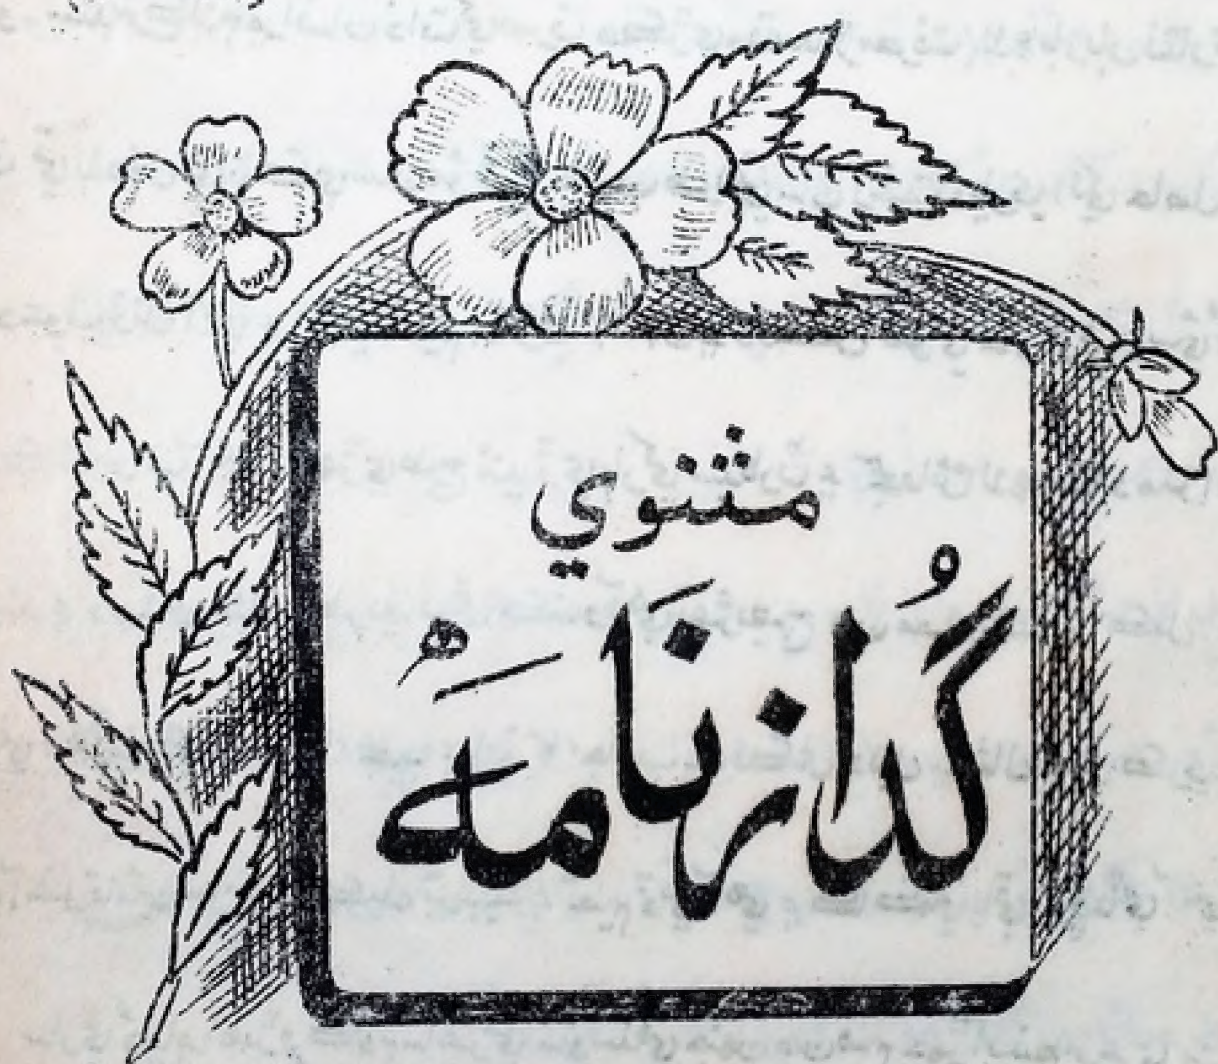 مثنوي
گُدازنَامَهْ